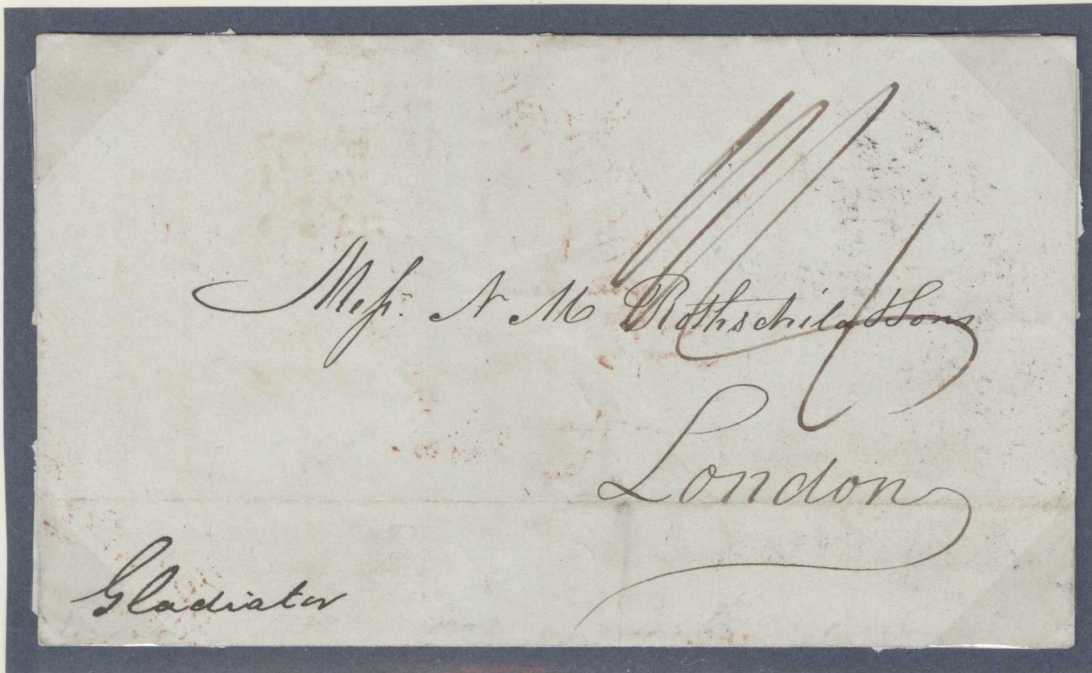 Messrs. N M Rothschild & Sons
London
Gladiator